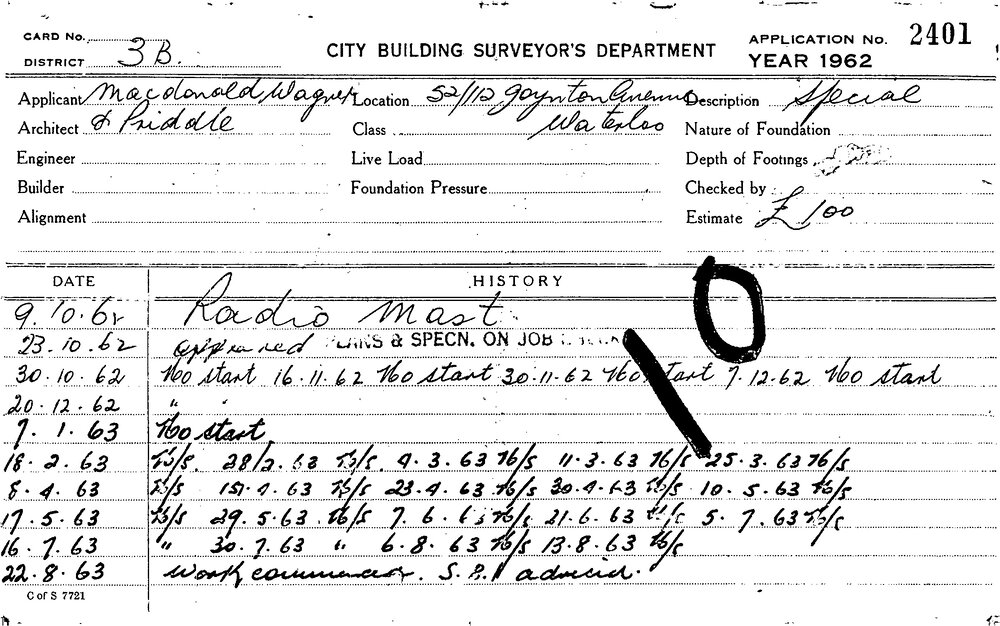 CARD No.
DISTRICT 3B.
CITY BUILDING SURVEYOR'S DEPARTMENT
APPLICATION No. 2401
YEAR 1962
Applicant Macdonald, Wagner Location 52/112 Joynton Avenue Description Special
Architect & Priddle Class Waterloo Nature of Foundation
Engineer Live Load Depth of Footings
Builder Foundation Pressure Checked by
Alignment Estimate £100
DATE HISTORY
9.10.62 Radio Mast
23.10.62 approved PLANS & SPECN. ON JOB
30.10.62 No start 16.11.62 No start 30.11.62 No start 7.12.62 No start
20.12.62 " "
7.1.63 No start
18.2.63 N/S. 28/2.63 N/S. 4.3.63 N/S 11.3.63 N/S 25.3.63 N/S
8.4.63 N/S 15.4.63 N/S 23.4.63 N/S 30.4.63 N/S 10.5.63 N/S
17.5.63 N/S 29.5.63 N/S 7.6.63 N/S 21.6.63 N/S 5.7.63 N/S
16.7.63 " 30.7.63 " 6.8.63 N/S 13.8.63 N/S
22.8.63 Work commenced. advised.
10
C of S 7721